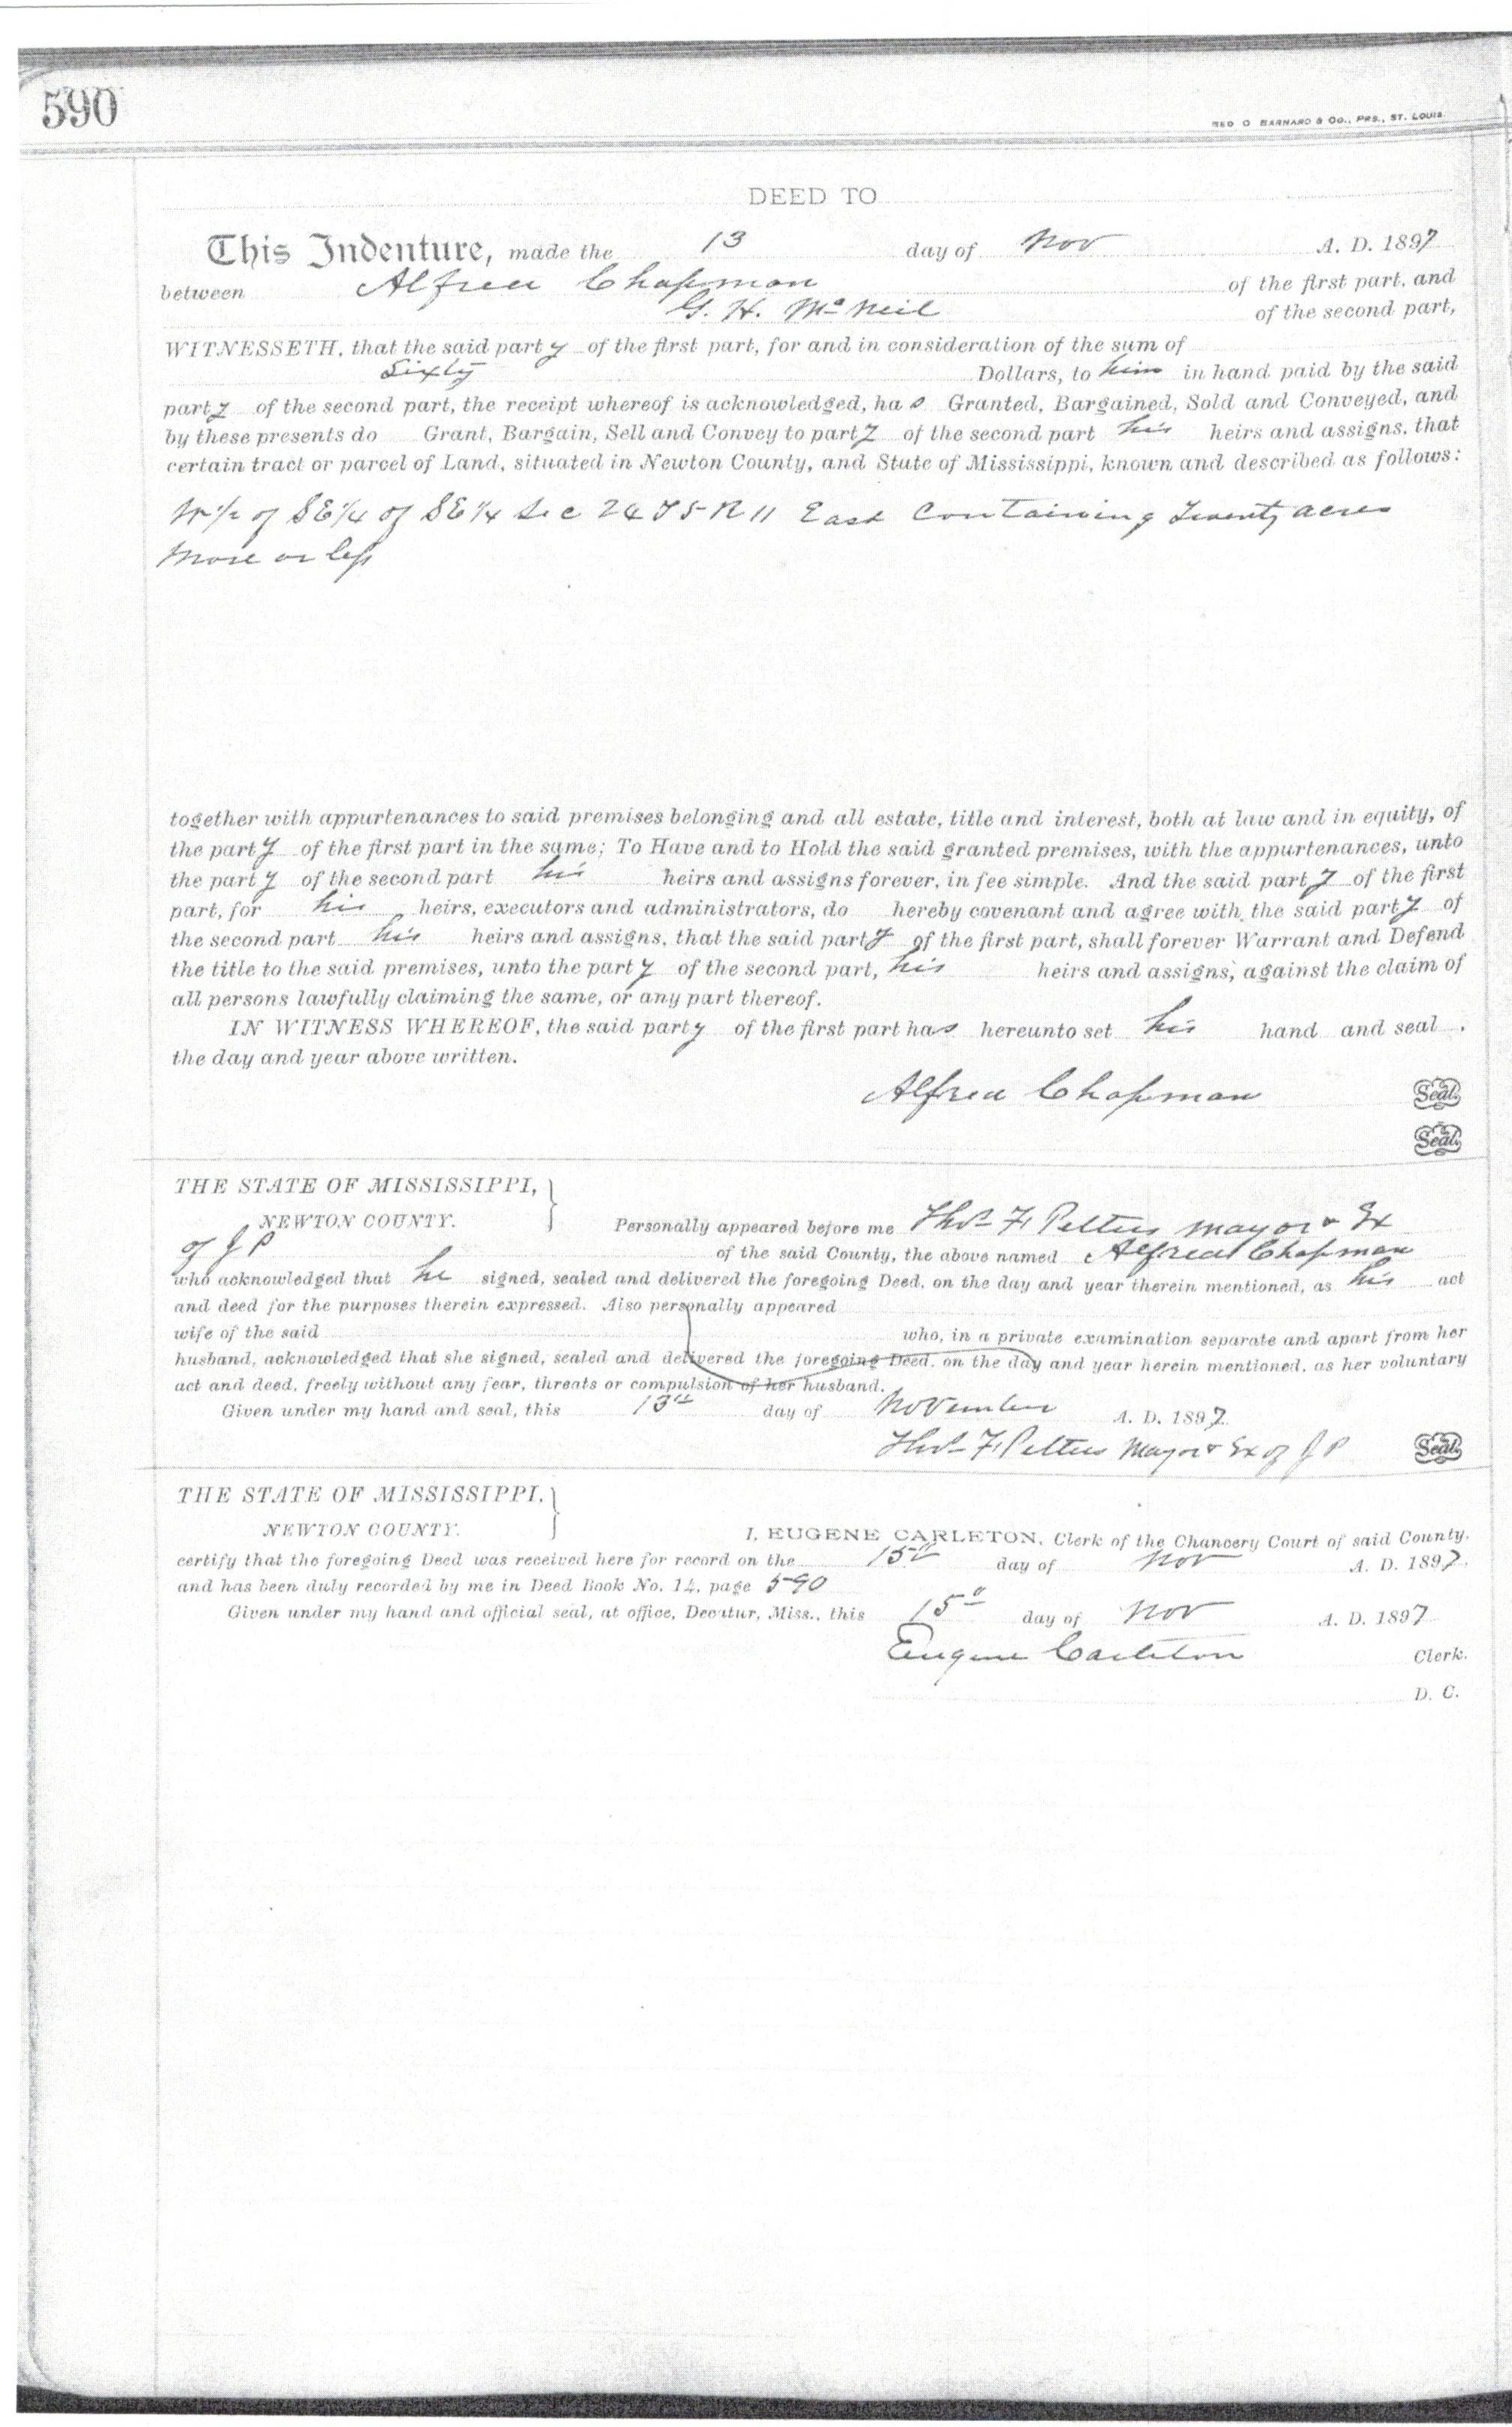 590
GEO. D. BARNARD & CO., PRS., ST. LOUIS.
DEED TO
This Indenture, made the 13 day of Nov A. D. 1897
between Alfred Chapman of the first part, and
G. H. McNeil of the second part,
WITNESSETH, that the said party of the first part, for and in consideration of the sum of
Sixty Dollars, to him in hand paid by the said
party of the second part, the receipt whereof is acknowledged, has Granted, Bargained, Sold and Conveyed, and
by these presents do Grant, Bargain, Sell and Convey to party of the second part his heirs and assigns, that
certain tract or parcel of Land, situated in Newton County, and State of Mississippi, known and described as follows:
W 1/2 of SE 1/4 of SE 1/4 Sec 24 T 5 R 11 East Containing Twenty acres
More or less
together with appurtenances to said premises belonging and all estate, title and interest, both at law and in equity, of
the party of the first part in the same; To Have and to Hold the said granted premises, with the appurtenances, unto
the party of the second part his heirs and assigns forever, in fee simple. And the said party of the first
part, for his heirs, executors and administrators, do hereby covenant and agree with the said party of
the second part his heirs and assigns, that the said party of the first part, shall forever Warrant and Defend
the title to the said premises, unto the party of the second part, his heirs and assigns, against the claim of
all persons lawfully claiming the same, or any part thereof.
IN WITNESS WHEREOF, the said party of the first part has hereunto set his hand and seal.
the day and year above written.
Alfred Chapman Seal.
Seal.
THE STATE OF MISSISSIPPI,
NEWTON COUNTY. Personally appeared before me Thos F. Pettus Mayor & Ex
of J P of the said County, the above named Alfred Chapman
who acknowledged that he signed, sealed and delivered the foregoing Deed, on the day and year therein mentioned, as his act
and deed for the purposes therein expressed. Also personally appeared
wife of the said who, in a private examination separate and apart from her
husband, acknowledged that she signed, sealed and delivered the foregoing Deed, on the day and year herein mentioned, as her voluntary
act and deed, freely without any fear, threats or compulsion of her husband.
Given under my hand and seal, this 13th day of November A. D. 1897
Thos F. Pettus Mayor & Ex of J P Seal.
THE STATE OF MISSISSIPPI,
NEWTON COUNTY. I, EUGENE CARLETON, Clerk of the Chancery Court of said County,
certify that the foregoing Deed was received here for record on the 15th day of Nov A. D. 1897,
and has been duly recorded by me in Deed Book No. 14, page 590
Given under my hand and official seal, at office, Decatur, Miss., this 15th day of Nov A. D. 1897
Eugene Carleton Clerk.
D. C.